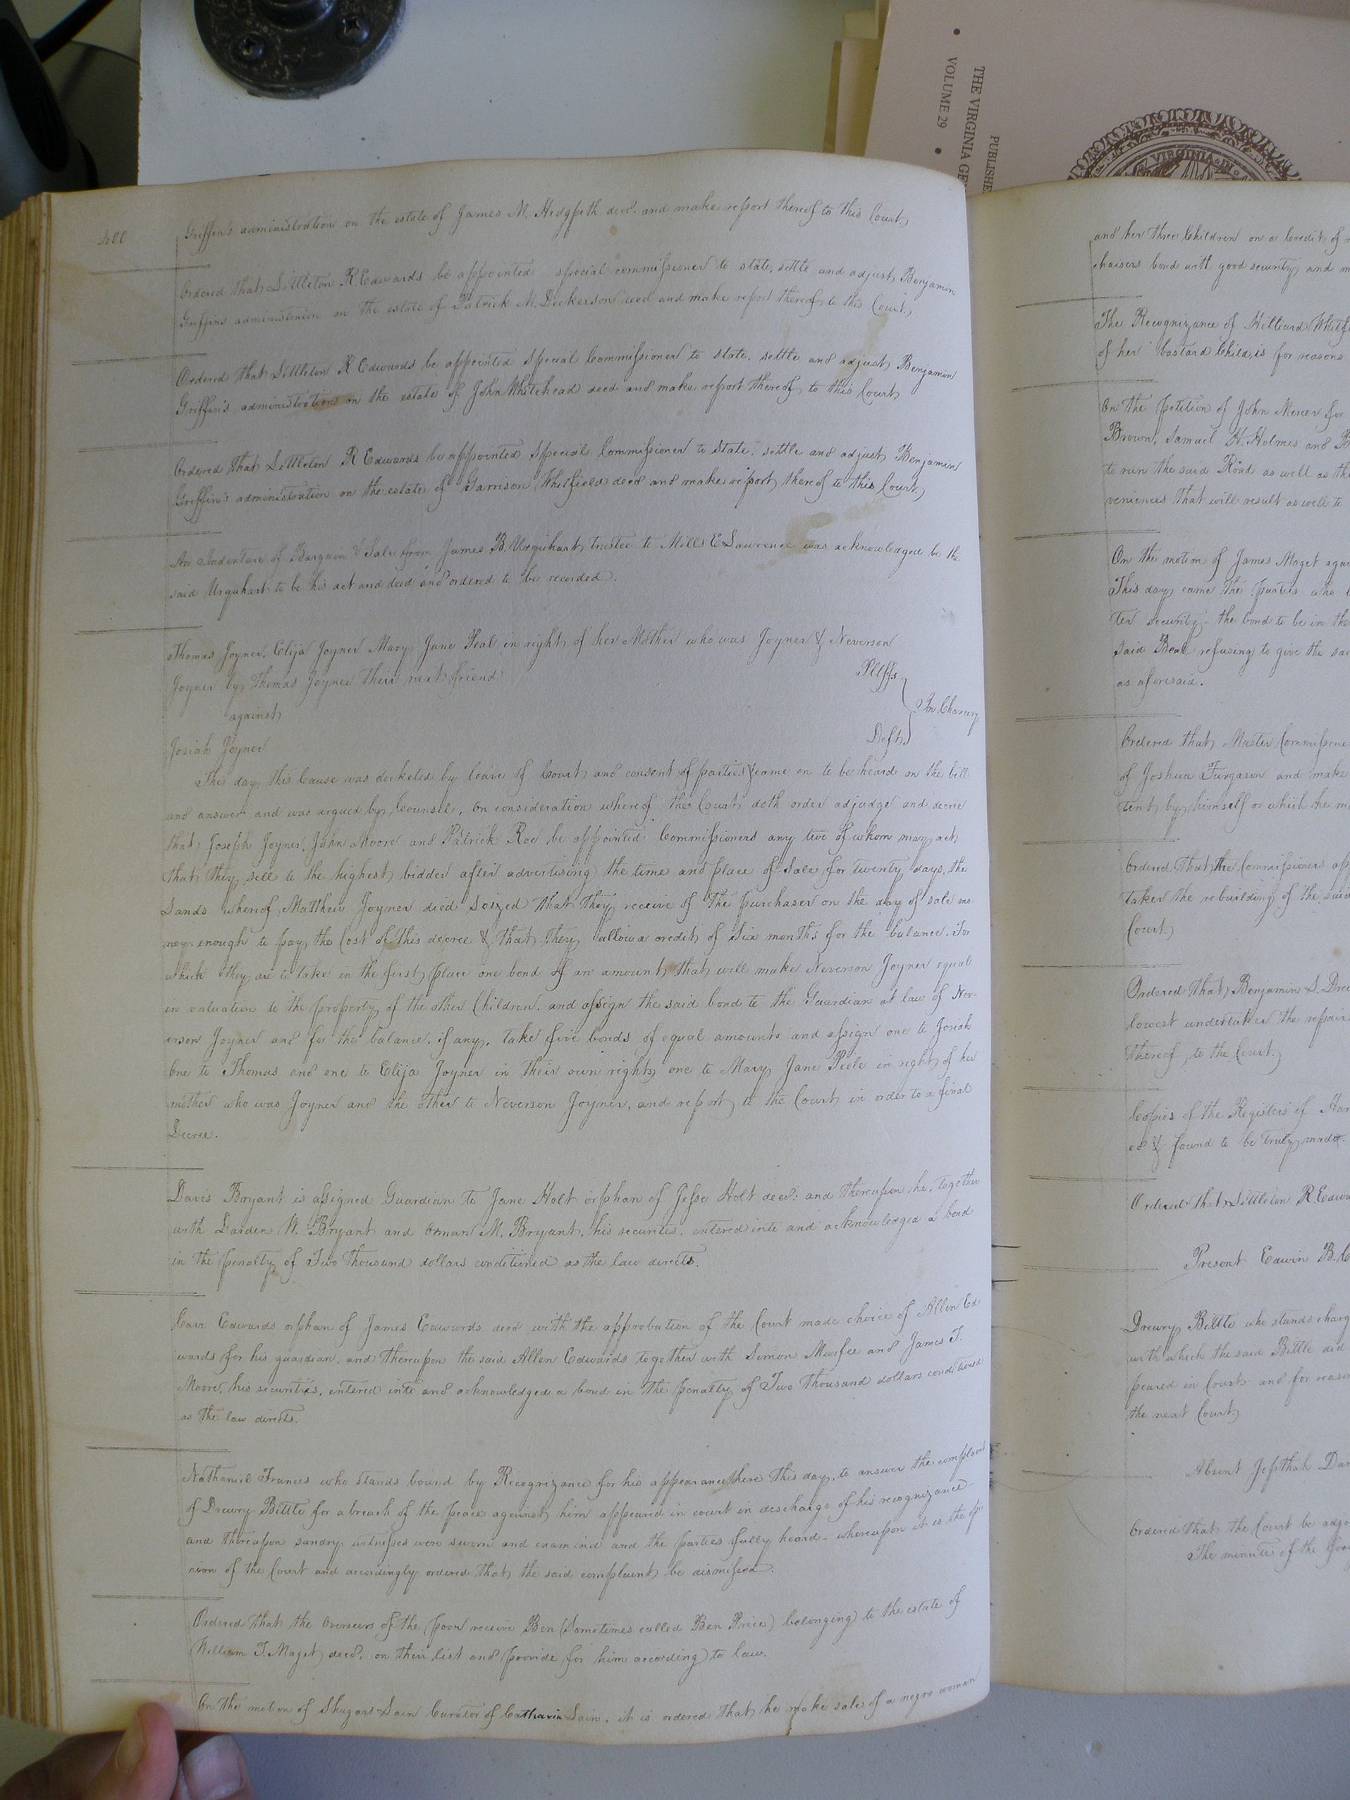 THE VIRGINIA GE
VOLUME 29
PUBLISHE
VIRGINIA
400
Griffin's administration on the estate of James M. Hedgpeth decd. and make report thereof to this Court
Ordered that Littleton R Edwards be appointed special commissioner to state, settle and adjust Benjamin
Griffins administration on the estate of Patrick M. Dickerson decd and make report thereof to this Court.
Ordered that Littleton R Edwards be appointed Special Commissioner to state, settle and adjust Benjamin
Griffin's administration on the estate of John Whitehead decd and make report thereof to this Court
Ordered that Littleton R Edwards be appointed Special Commissioner to State, settle and adjust Benjamin
Griffin's administration on the estate of Garrison Whitfield decd and make report thereof to this Court
An Indenture of Bargain & Sale from James B. Urquhart trustee to Mills E Lawrence was acknowledged by the
said Urquhart to be his act and deed and ordered to be recorded.
Thomas Joyner, Elija Joyner Mary Jane Peal in right of her Mother who was Joyner & Neverson
Joyner by Thomas Joyner their next friend Pltffs
against In Chancery
Josiah Joyner Deft
This day this Cause was docketed by leave of Court and consent of parties & came on to be heard on the bill
and answer and was argued by Counsel, On consideration whereof the Court doth order adjudge and decree
that Joseph Joyner, John Moore and Patrick Roe be appointed Commissioners any two of whom may act
that they sell to the highest bidder after advertising the time and place of Sale for twenty days, the
Lands whereof Matthew Joyner died Seized that they receive of the purchaser on the day of sale mo
ney enough to pay the Cost of this decree & that they allow a credit of six months for the balance. For
which they are to take in the first place one bond of an amount that will make Neverson Joyner equal
in valuation to the property of the other Children, and assign the said bond to the Guardian at law of Nev-
erson Joyner and for the balance, if any, take five bonds of equal amounts and assign one to Josiah
One to Thomas and one to Elija Joyner in their own right, one to Mary Jane Peele in right of her
mother who was Joyner and the other to Neverson Joyner, and report to the Court in order to a final
Decree.
Davis Bryant is assigned Guardian to Jane Holt orphan of Jesse Holt decd: and thereupon he, together
with Darden W. Bryant and Orman M. Bryant, his securities, entered into and acknowledged a bond
in the penalty of Two thousand dollars conditioned as the law directs.
Carr Edwards orphan of James Edwards decd with the approbation of the Court made choice of Allen Ed
wards for his guardian, and thereupon the said Allen Edwards together with Simon Murfee and James T.
Moore, his securities, entered into and acknowledged a bond in the penalty of Two thousand dollars conditioned
as the law directs.
Nathaniel Francis who stands bound by Recognizance for his appearance here this day, to answer the complaint
of Drewry Bittle for a breach of the peace against him appeared in court in discharge of his recognizance
and thereupon sundry witnesses were sworn and examined and the parties fully heard - whereupon it is the opi
nion of the Court and accordingly ordered that the said complaint be dismissed.
Ordered that the overseers of the poor receive Ben (Sometimes called Ben Price) belonging to the estate of
William T. Maget decd. on their list and provide for him according to law.
On the motion of Curator of it is ordered that he make sale of a negro woman
and her three Children on a Credit of
chasers bond with good security and m
The Recognizance of Whitf
of her bastard Child, is for reasons
On the petition of John Mercer for
Brown, Samuel H. Holmes and
to run the said Road as well as th
veniences that will result as well to
On the motion of James Maget agai
This day came the parties who
ter security - the bond to be in the
said Beal refusing to give the sa
as aforesaid.
Ordered that Master Commissione
of Joshua Turgason and make
sent by himself or which he m
Ordered that the Commissioners app
taken the rebuilding of the said
Court
Ordered that Benjamin S. Drew
lowest undertaker the repairs
thereof to the Court.
Copies of the Registers of Har
ed & found to be truly made.
Ordered that Littleton R Edwa
Present Edwin B. C
Drewry Bittle who stands charg
with which the said Bittle did
peared in Court and for reason
the next Court
Absent Jephthah Dar
Ordered that the Court be adjo
The minutes of the fore